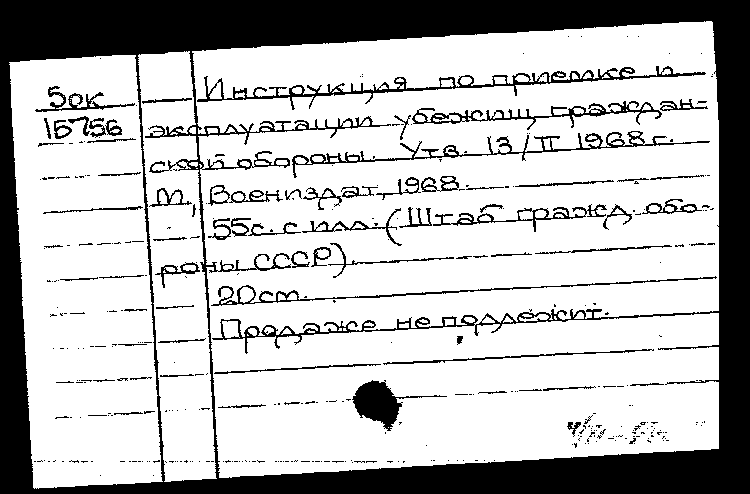 5ок
15756
Инструкция по приемке и
эксплуатации убежищ граждан=
ской обороны. Утв. 13/II 1968 г.
М., Воениздат, 1968.
55с. с илл. (Штаб гражд. обо-
роны СССР).
20 см.
Продаже не подлежит.